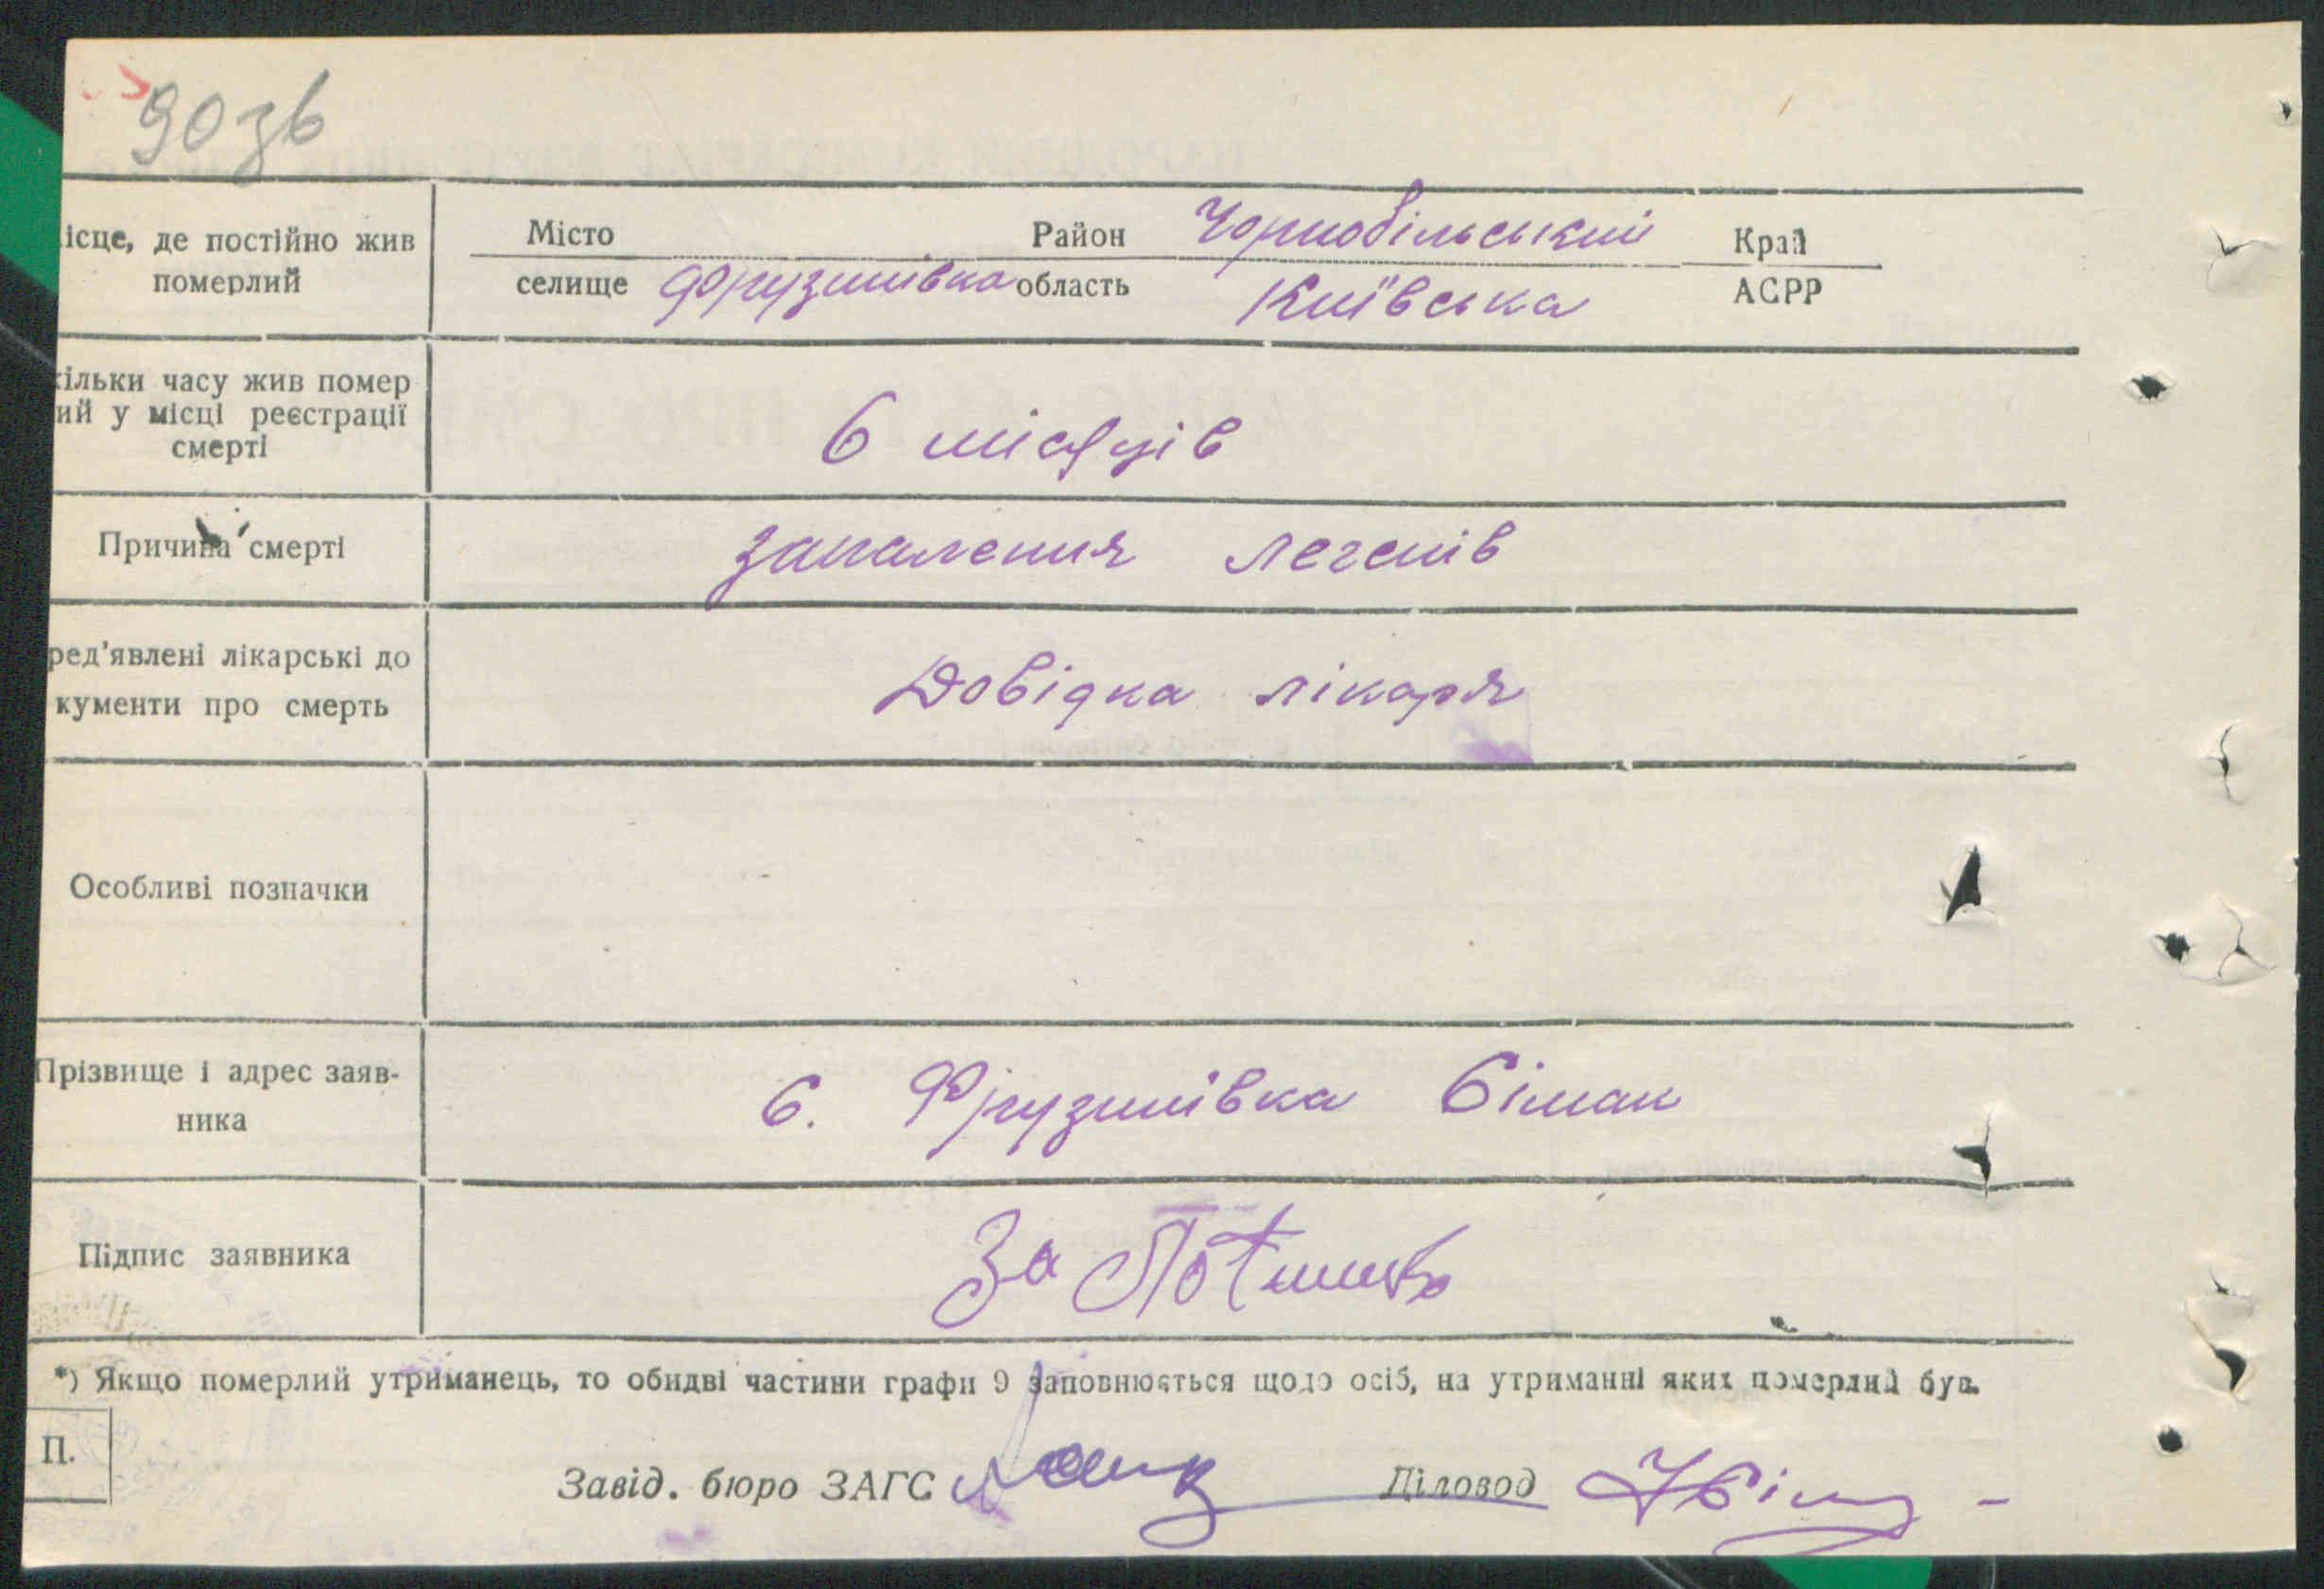 90зв
ісце, де постійно жив
померлий
Місто Район Чорнобільський Край
селище Фрузинівка область Київська АСРР
кільки часу жив помер
ий у місці реєстрації
смерті
6 місяців
Причина смерті
запалення легенів
ред'явлені лікарські до
кументи про смерть
Довідка лікаря
Особливі позначки
Прізвище і адрес заяв-
ника
с. Фрузинівка Сіман
Підпис заявника
За
*) Якщо померлий утриманець, то обидві частини графи 9 заповнюється щодо осіб, на утриманні яких померлий був.
П.
Завід. бюро ЗАГС Діловод